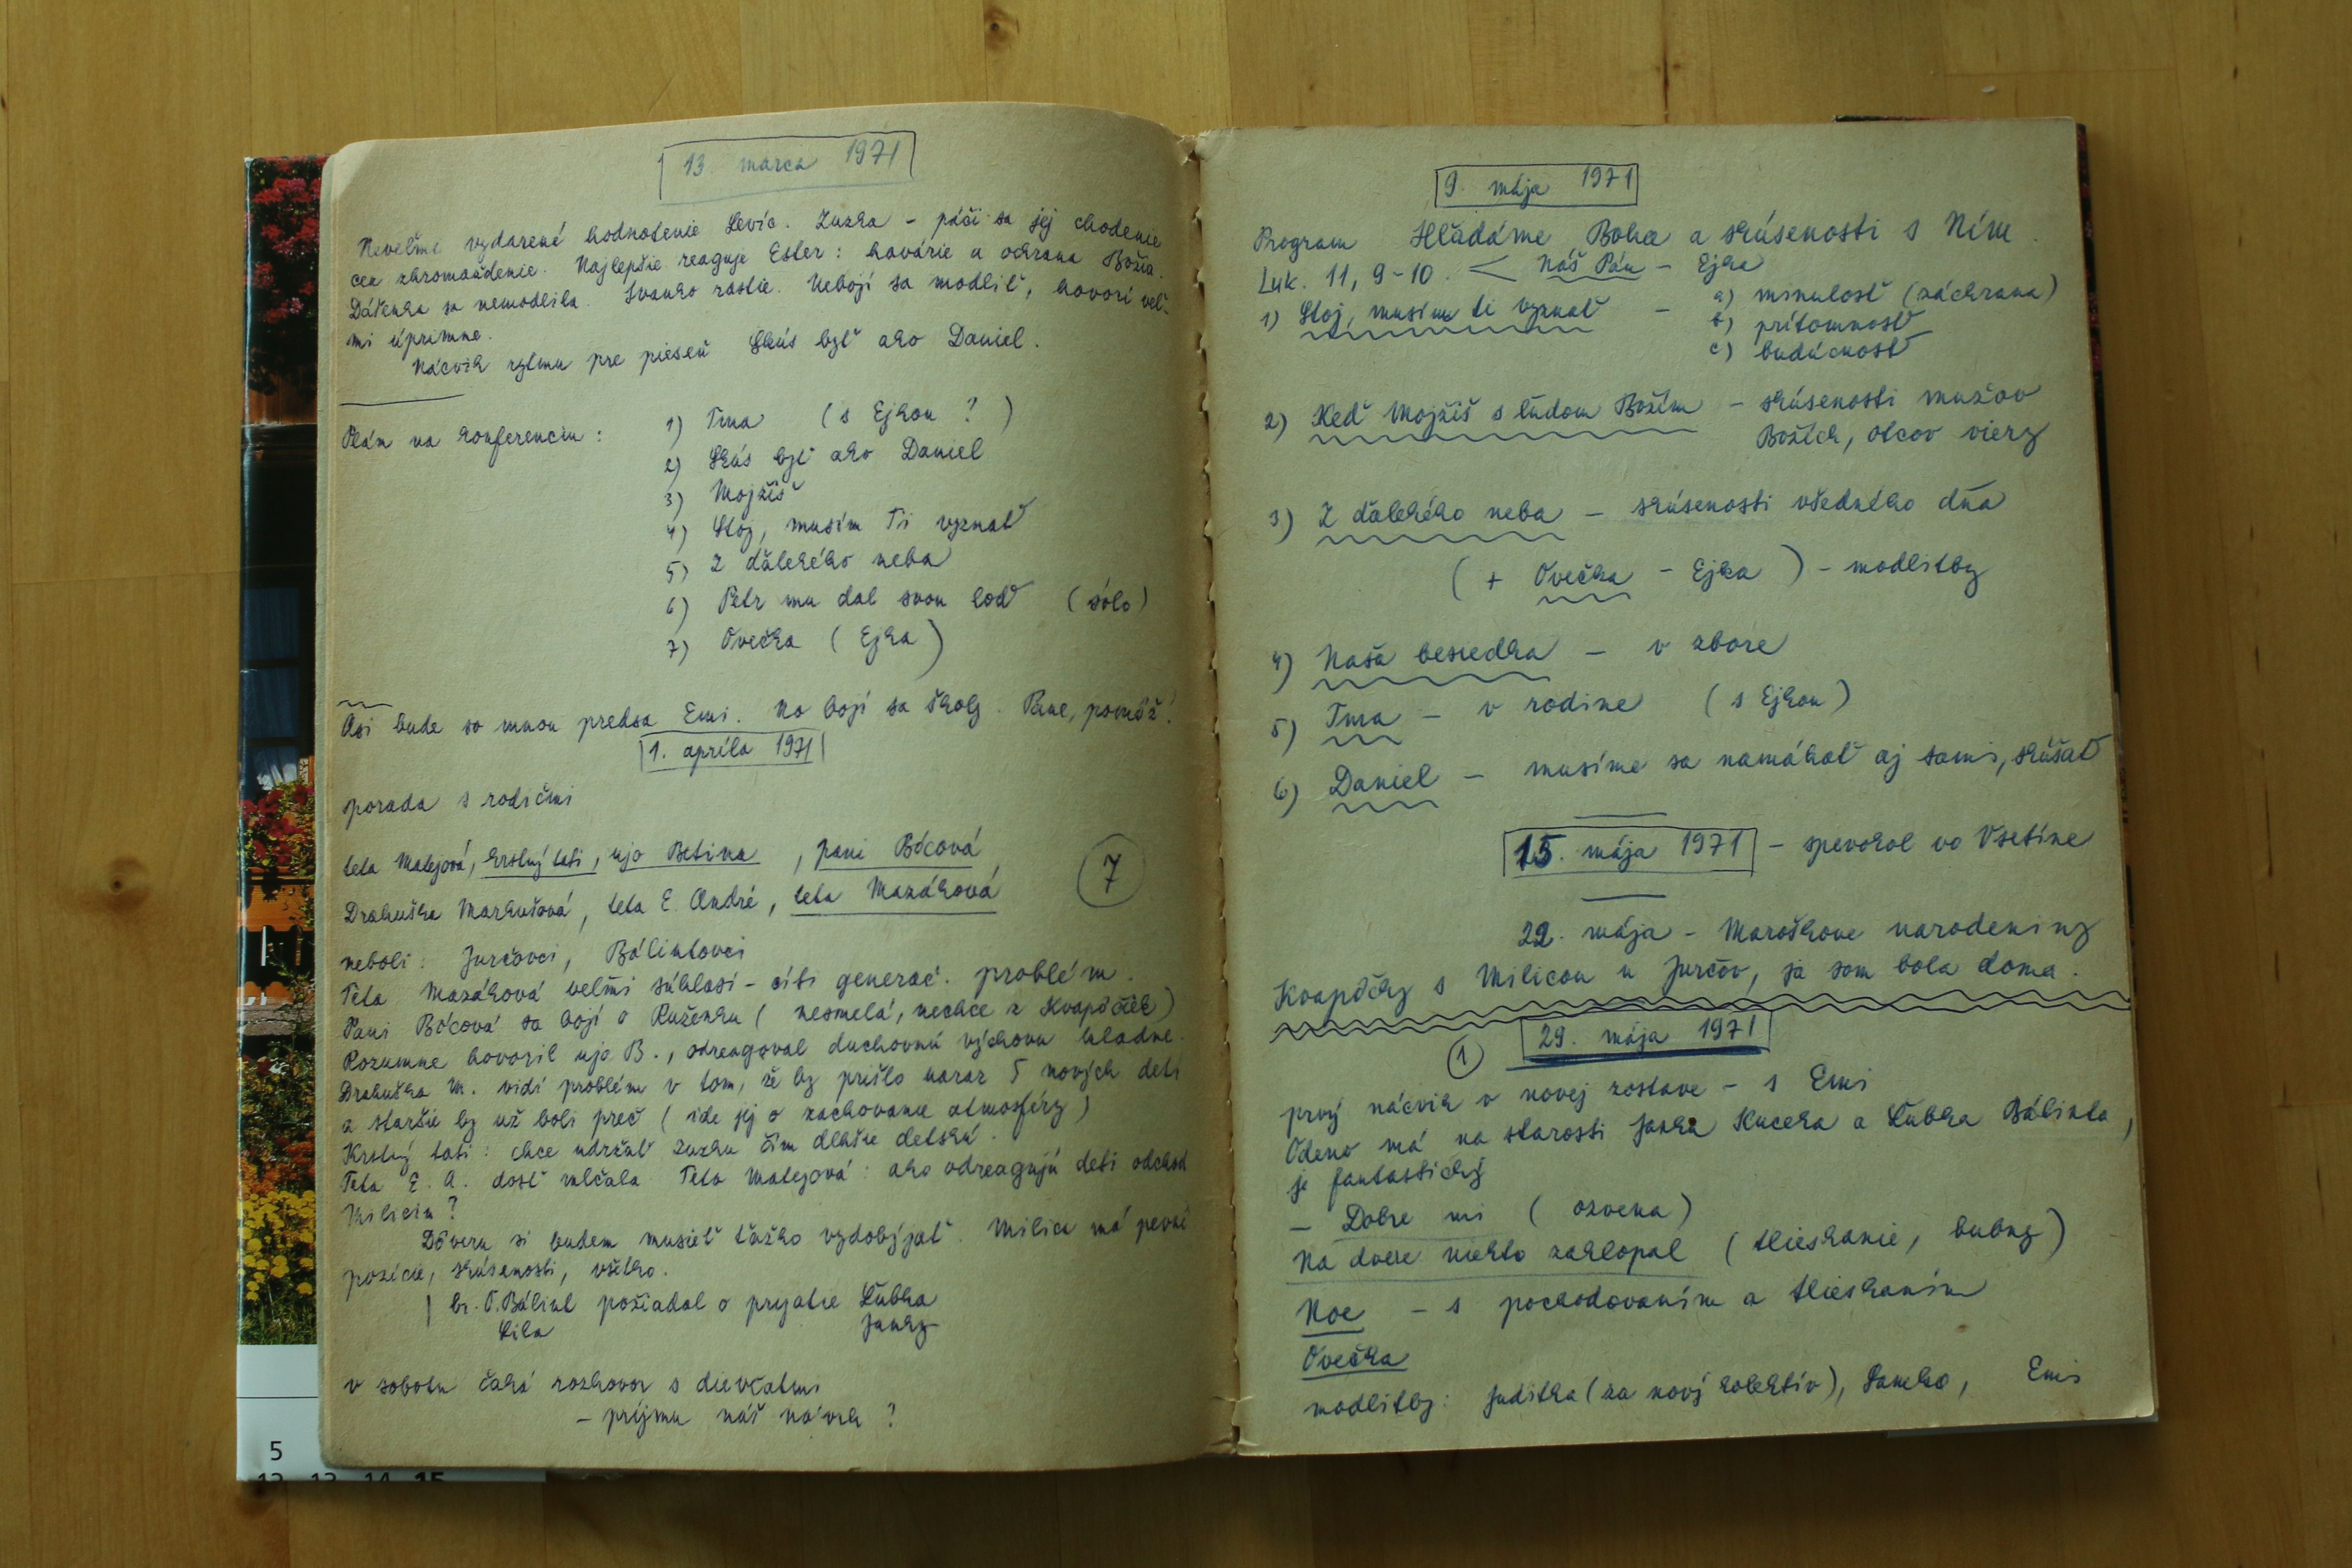 13. marca 1971
Neveľmi vydarené hodnotenie Levíc. Zuzka - páči sa jej chodenie
cez zhromaždenie. Najlepšie reaguje Ester: havárie a ochrana Božia.
Dášenka sa nemodlila. Ivanko rastie. Nebojí sa modliť, hovorí veľ-
mi úprimne.
Nácvik rytmu pre pieseň Skús byť ako Daniel.
Plán na konferenciu:
1) Tma (s Ejkou?)
2) Skús byť ako Daniel
3) Mojžiš
4) Stoj, musím Ti vyznať
5) Z ďalekého neba
6) Petr mu dal svou loď (sólo)
7) Ovečka (Ejka)
Asi bude so mnou predsa Emi. No bojí sa školy. Pane, pomôž!
1. apríla 1971
porada s rodičmi
teta Matejová, krstný tati, ujo Betina, pani Bócová
Drahuška Markušová, teta E. André, teta Mazáková
7
neboli: Jurčovci, Bálintovci
Teta Mazáková veľmi súhlasí - cíti generač. problém.
Pani Bócová sa bojí o Ruženku (nesmelá, nechce z Kvapôčiek)
Rozumne hovoril ujo B., odreagoval duchovnú výchovu kladne.
Drahuška M. vidí problém v tom, že by prišlo naraz 5 nových detí
a staršie by už boli preč (ide jej o zachovanie atmosféry)
Krstný tati: chce udržať Zuzku čím dlhšie detskú.
Teta E. A. dosť mlčala. Teta Matejová: ako odreagujú deti odchod
Milicin?
Dôveru si budem musieť ťažko vydobýjať. Milica má pevné
pozície, skúsenosti, všetko.
br. T. Bálint požiadal o prijatie Ľubka
Lila Janky
v sobotu čaká rozhovor s dievčatmi
- príjmu náš návrh?
9. mája 1971
Program Hľadáme Boha a skúsenosti s Ním.
Luk. 11, 9-10. < Náš Pán - Ejka
1) Stoj, musím ti vyznať - a) minulosť (záchrana)
b) prítomnosť
c) budúcnosť
2) Keď Mojžiš s ľudom Božím - skúsenosti mužov
Božích, otcov viery
3) Z ďalekého neba - skúsenosti všedného dňa
(+ Ovečka - Ejka) - modlitby
4) Naša besiedka - v zbore
5) Tma - v rodine (s Ejkou)
6) Daniel - musíme sa namáhať aj sami, skúšať
15. mája 1971 - spevokol vo Vsetíne
22. mája - Maroškove narodeniny
Kvapôčky s Milicou u Jurčov, ja som bola doma.
29. mája 1971
1
prvý nácvik v novej zostave - s Emi
Odeno má na starosti Janka Kuceka a Ľubka Bálinta,
je fantastický
- Dobre mi (ozvena)
Na dvere niekto zaklopal (tlieskanie, bubny)
Noe - s pochodovaním a tlieskaním
Ovečka
modlitby: Juditka (za nový kolektív), Samko, Emi
5
12 13 14 15